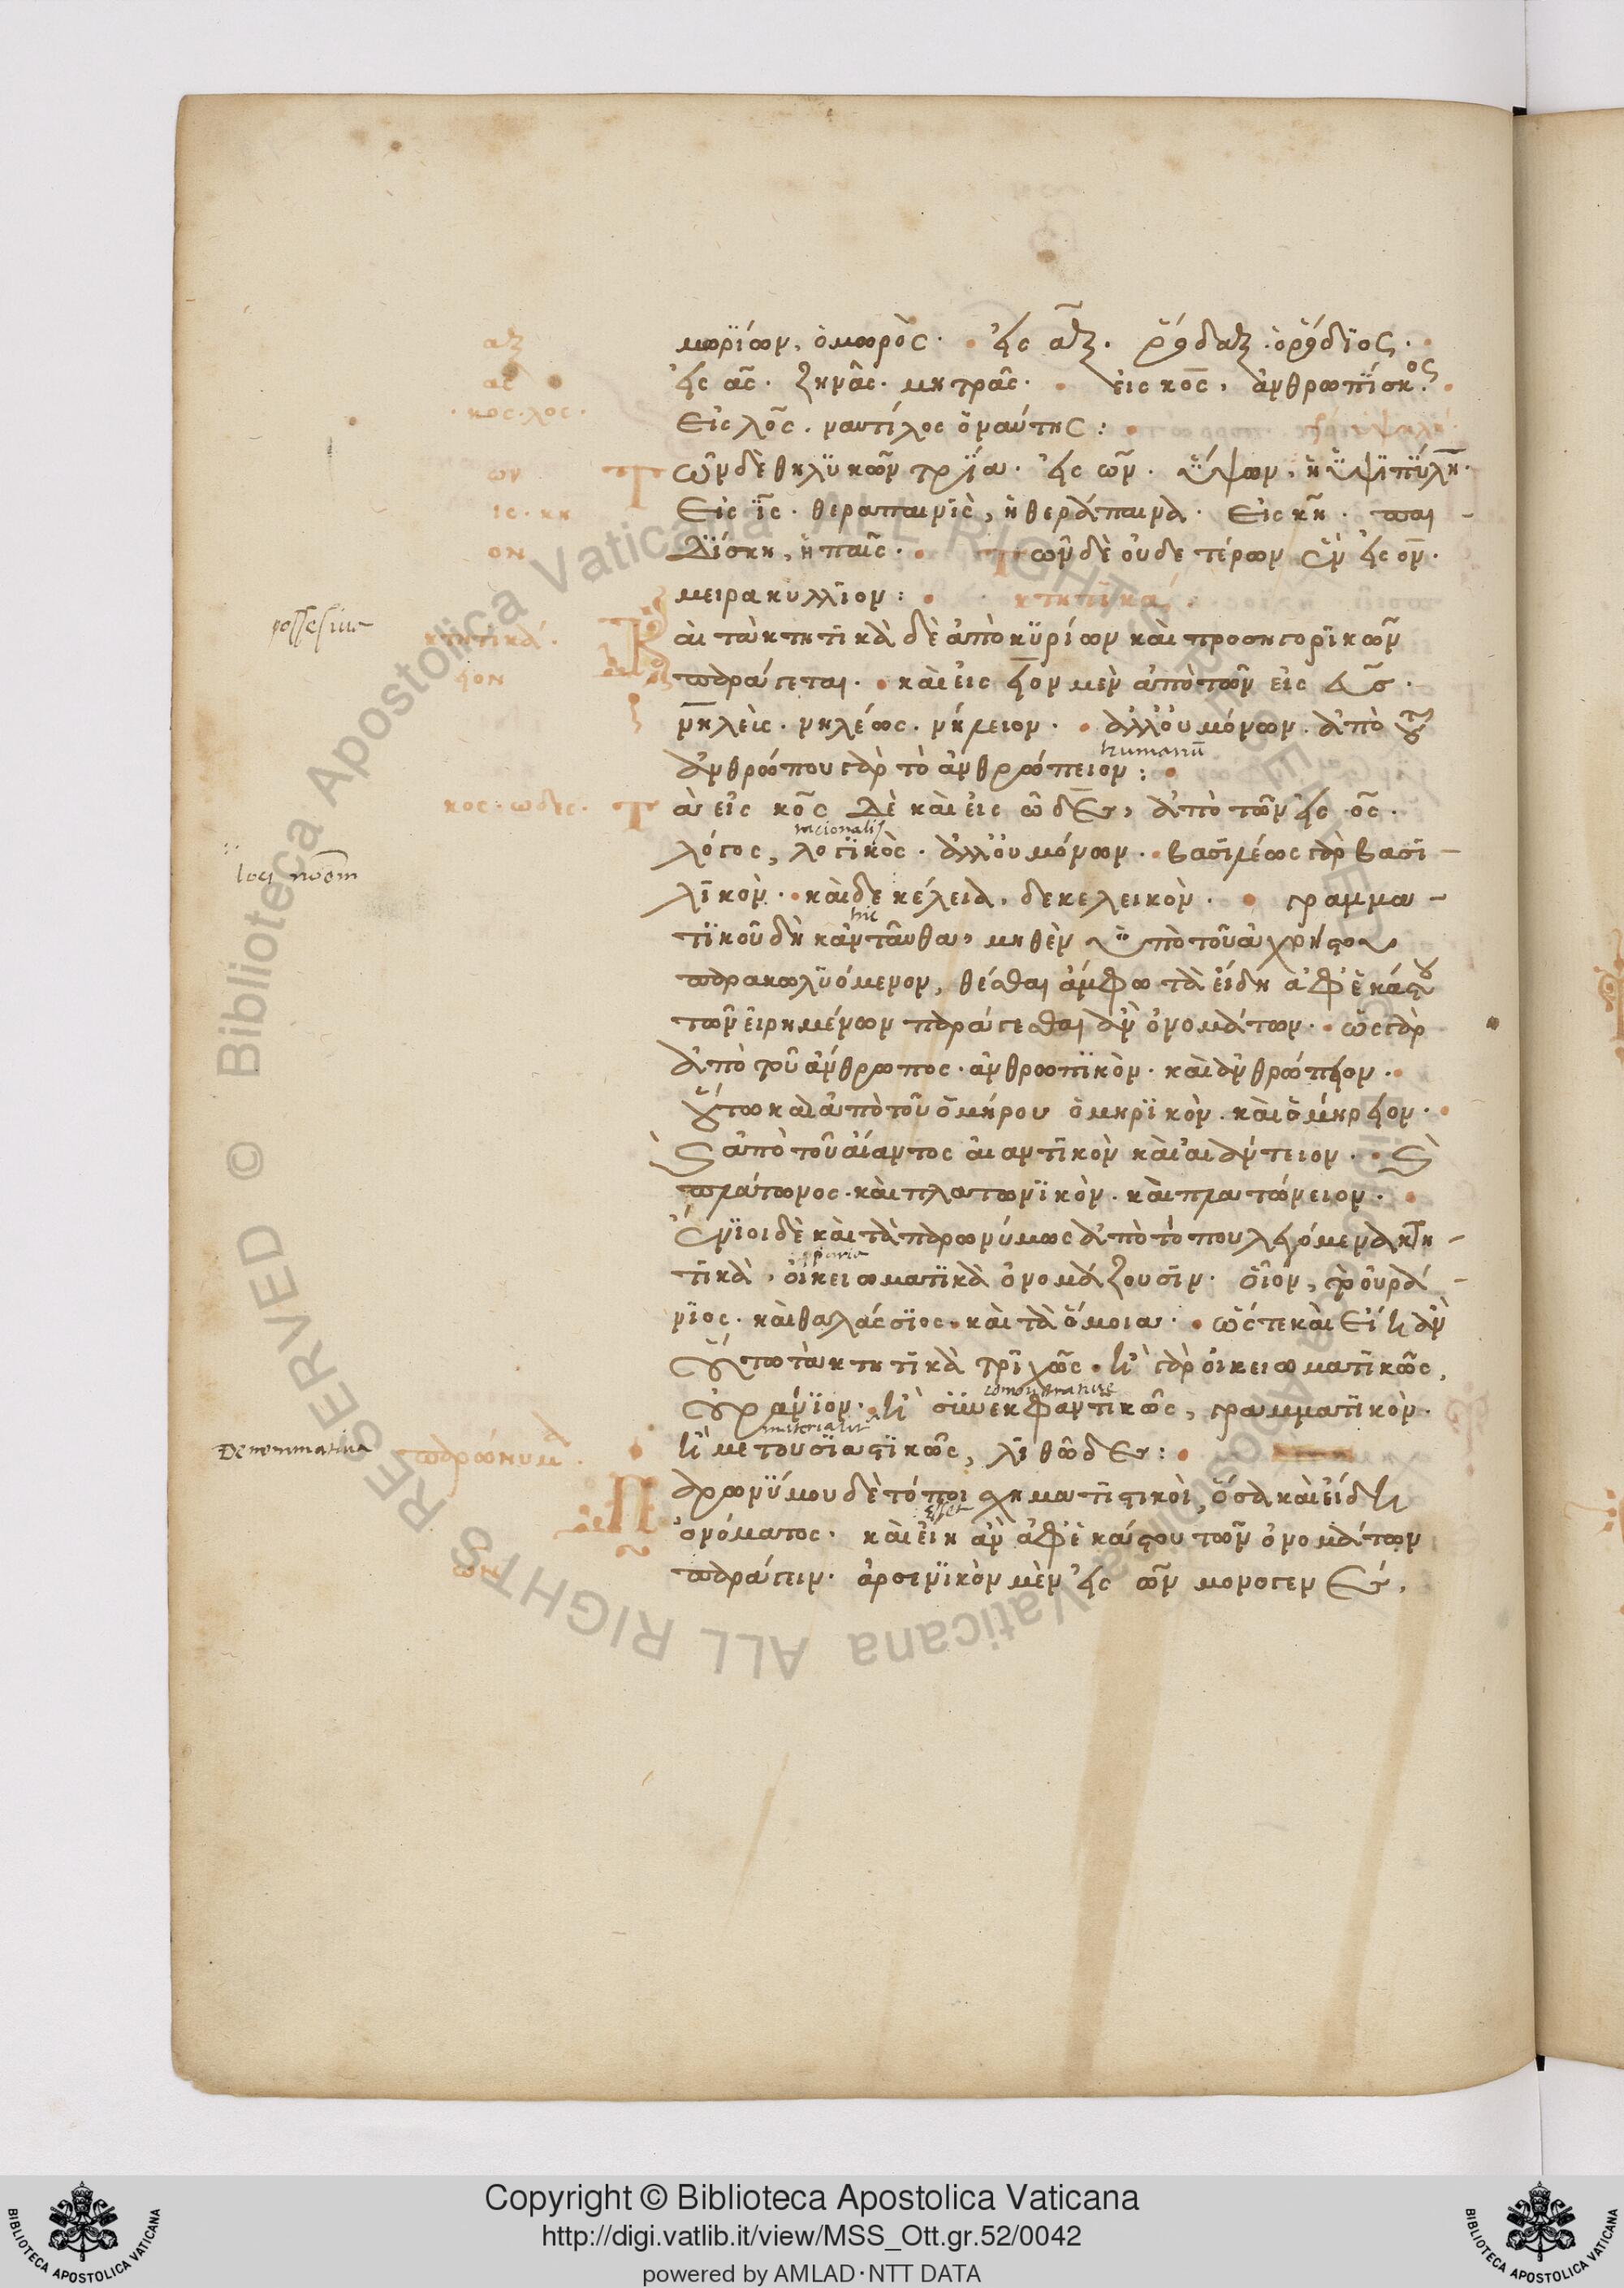 αξ
μωρίων, ὁ μωρὸς· εἰς αξ. ῥόδαξ. ὁ ῥόδιος.
ας
εἰς ας. ζηνᾶς. μητρᾶς. εἰς κος, ἀνθρωπίσκος.
κος. λος.
Εἰς λος. ναυτίλος ὁ ναύτης:
ων
Τῶν δὲ θηλυκῶν τρία. εἰς ων. ὕψων, ἡ ὑψιπύλη.
ις. κη
Εἰς ις. θεραπαινὶς, ἡ θεράπαινα. Εἰς κη. παι-
ον
δίσκη, ἡ παῖς. Τῶν δὲ οὐδετέρων ἓν εἰς ον.
μειρακύλλιον: κτητικά
possessiua
κτητικά.
Καὶ τὰ κτητικὰ δὲ ἀπὸ κυρίων καὶ προσηγορικῶν
ειον
παράγεται. καὶ εἰς ειον μὲν ἀπὸ τῶν εἰς ευς.
νηλεὺς. νηλέως. νήλειον. ἀλλ' οὐ μόνων. ἀπὸ τοῦ
humanum
ἀνθρώπου γὰρ τὸ ἀνθρώπειον:
κος. ωδες.
Τὰ εἰς κος δὲ καὶ εἰς ωδες, ἀπὸ τῶν εἰς ος.
racionalis
λόγος, λογικὸς. ἀλλ' οὐ μόνων. βασιλέως γὰρ βασι-
loci nom
λικὸν. καὶ δεκέλεια, δεκελεικὸν. γραμμα-
hic
τικοῦ δὴ κἀνταῦθα, μηθὲν ὑπὸ τοῦ ἀχρήστου
παρακωλυόμενον, θέσθαι ἄμφω τὰ εἴδη ἀφ' ἑκάστου
τῶν εἰρημένων παράγεσθαι ἂν ὀνομάτων. ὡς γὰρ
ἀπὸ τοῦ ἄνθρωπος. ἀνθρωπικὸν. καὶ ἀνθρώπειον.
οὕτω καὶ ἀπὸ τοῦ ὁμήρου ὁμηρικὸν. καὶ ὁμήρειον.
καὶ ἀπὸ τοῦ αἴαντος αἰαντικὸν καὶ αἰάντειον. καὶ
πλάτωνος. καὶ πλατωνικὸν. καὶ πλατώνειον.
Ἔνιοι δὲ καὶ τὰ παρωνύμως ἀπὸ τόπου λεγόμενα κτη-
propria
τικὰ, οἰκειωματικὰ ὀνομάζουσιν. οἷον, τὸ οὐρά-
νιος. καὶ θαλάσσιος. καὶ τὰ ὅμοια. ὥστε καὶ εἴη ἂν
οὕτω τὰ κτητικὰ τριχῶς. ἢ γὰρ οἰκειωματικῶς,
οὐράνιον. ἢ συνεκφαντικῶς, γραμματικὸν.
materialiter
Denominatiua
παρώνυμα.
ἢ μετουσιαστικῶς, λιθῶδες:
Παρωνύμου δὲ τόποι σχηματιστικοὶ, ὅσα καὶ εἴδη
esset
ὀνόματος. καὶ εἴη ἂν ἀφ' ἑκάστου τῶν ὀνομάτων
ων
παράγειν. ἀρσενικὸν μὲν εἰς ων μονογενὲς,
Copyright © Biblioteca Apostolica Vaticana
http://digi.vatlib.it/view/MSS_Ott.gr.52/0042
powered by AMLAD·NTT DATA
BIBLIOTECA APOSTOLICA VATICANA
BIBLIOTECA APOSTOLICA VATICANA
© Biblioteca Apostolica Vaticana ALL RIGHTS RESERVED